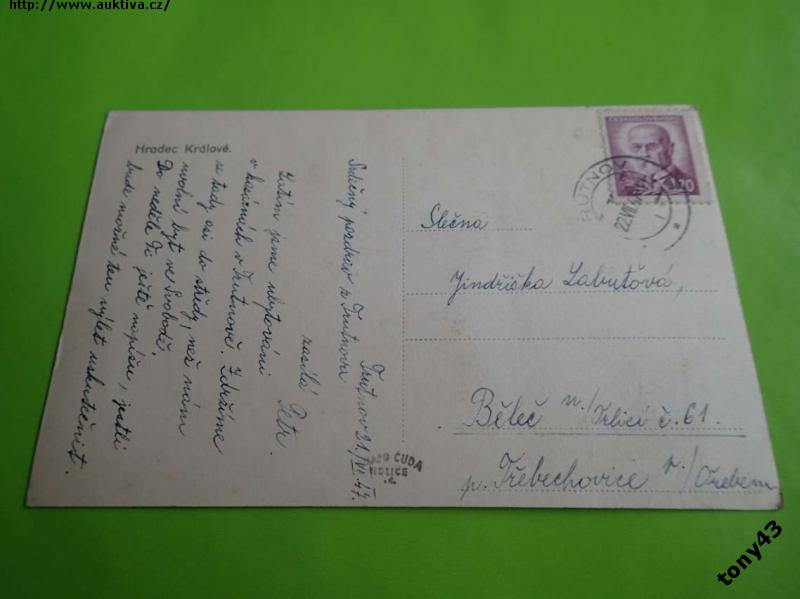 http://www.auktiva.cz/
Hradec Králové.
Trutnov 21./VI. 47.
Srdečný pozdrav z Trutnova
zasílá Petr.
Zatím jsme ubytováni
v kasárnách v Trutnově. Zdržíme
se tady asi do středy, než nám
uvolní byt ve Svobodě
Do neděle Ti ještě napíšu, jestli
bude možné ten výlet uskutečnit.
ČESKOSLOVENSKO
1.20
TRUTNOV 1
22.VI.
Slečna
Jindřiška Labuťová,
Běleč n./Orlicí č. 61.
p. Třebechovice p./Orebem
ČUDA
HOLICE
tony43